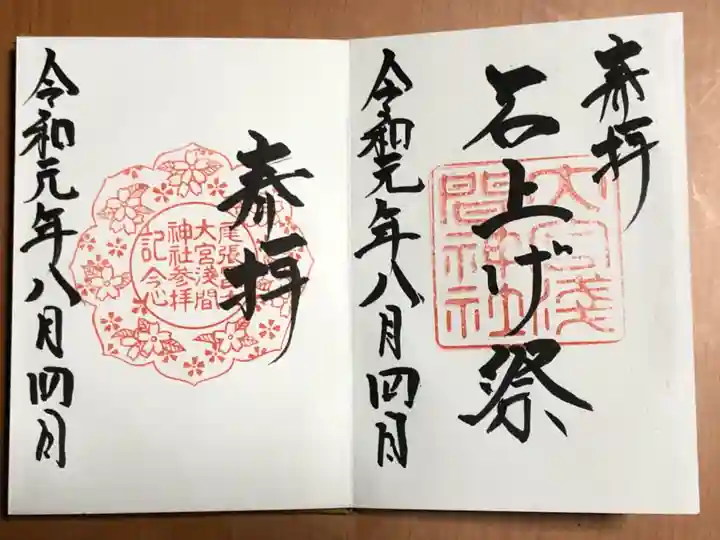 奉拝
石上げ祭
大宮浅
間神社
令和元年八月四日
奉拝
尾張富士
大宮淺間
神社参拝
記念
令和元年八月四日